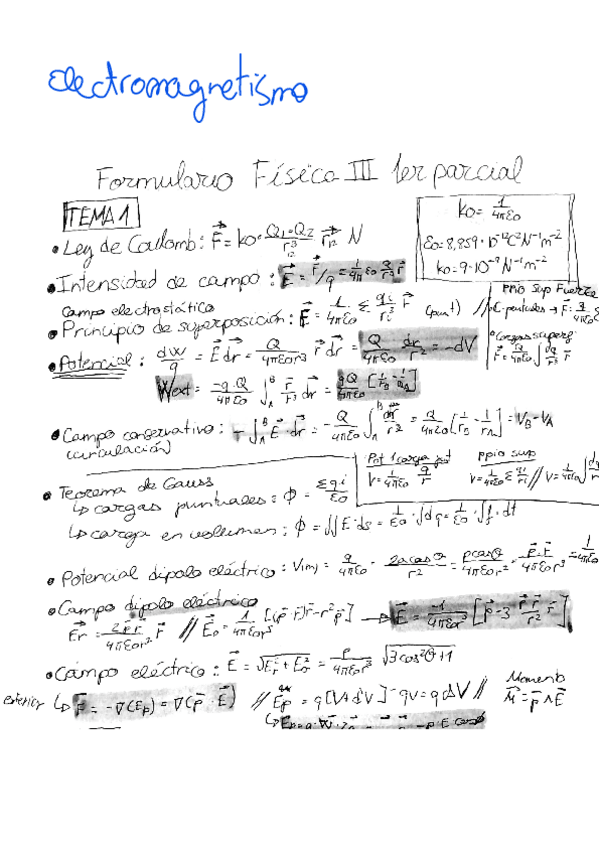 electromagnetismo
Formulario Física III 1er parcial
TEMA 1
k₀ = 1/4πε₀
ε₀ = 8,859·10⁻¹² C² N⁻¹ m⁻²
k₀ = 9·10⁻⁹ N⁻¹ m⁻²
• Ley de Coulomb: F⃗ = k₀· Q₁·Q₂/r₁₂³ r⃗₁₂ N
• Intensidad de campo: E⃗ = F⃗/q = 1/4π ε₀ Q/r³ r⃗
Campo electrostático
• Principio de superposición: E⃗ = 1/4πε₀ Σ qi/r³ r⃗
ppio sup Fuerte
• Potencial: dW/q = E⃗ dr⃗ = Q/4πε₀r³ r⃗ dr⃗ = Q/4πε₀ dr/r² = -dV
Wext = -q·Q/4πε₀ ∫_A^B r⃗/r³ dr⃗ = qQ/4πε₀ [1/rB - 1/rA]
• Campo conservativo: -∫_A^B E⃗·dr⃗ = -Q/4πε₀ ∫_A^B dr/r² = Q/4πε₀ [1/rB - 1/rA] = VB - VA
(circulación)
V = 1/4πε₀ q/r
ppio sup
V = 1/4πε₀ Σ qi/ri // V = 1/4πε₀ ∫
• Teorema de Gauss
↳ cargas puntuales: Φ = Σqi/ε₀
↳ carga en volumen: Φ = ∬E·ds = 1/ε₀·∫dq = 1/ε₀·∫ρ·dτ
• Potencial dipolo eléctrico: V(M) = q/4πε₀ · 2a cosθ/r² = p cosθ/4πε₀r² = p⃗·r⃗/4πε₀r³
• Campo dipolo eléctrico
E⃗r = 2p⃗r⃗/4πε₀r²·r⃗ // E⃗θ = 1/4πε₀r⁵ [(p⃗·r⃗)r⃗ - r²p⃗] → E⃗ = -1/4πε₀r³ [p⃗ - 3 p⃗r⃗/r² r⃗]
• Campo eléctrico: E⃗ = √Er² + Eθ² = p/4πε₀r³ √3cos²θ+1
exterior ↳ F⃗ = -∇(Ep) = ∇(p⃗·E⃗) // Ep = q[V+dV] - qV = qdV //
Momento
M⃗ = p⃗ ∧ E⃗